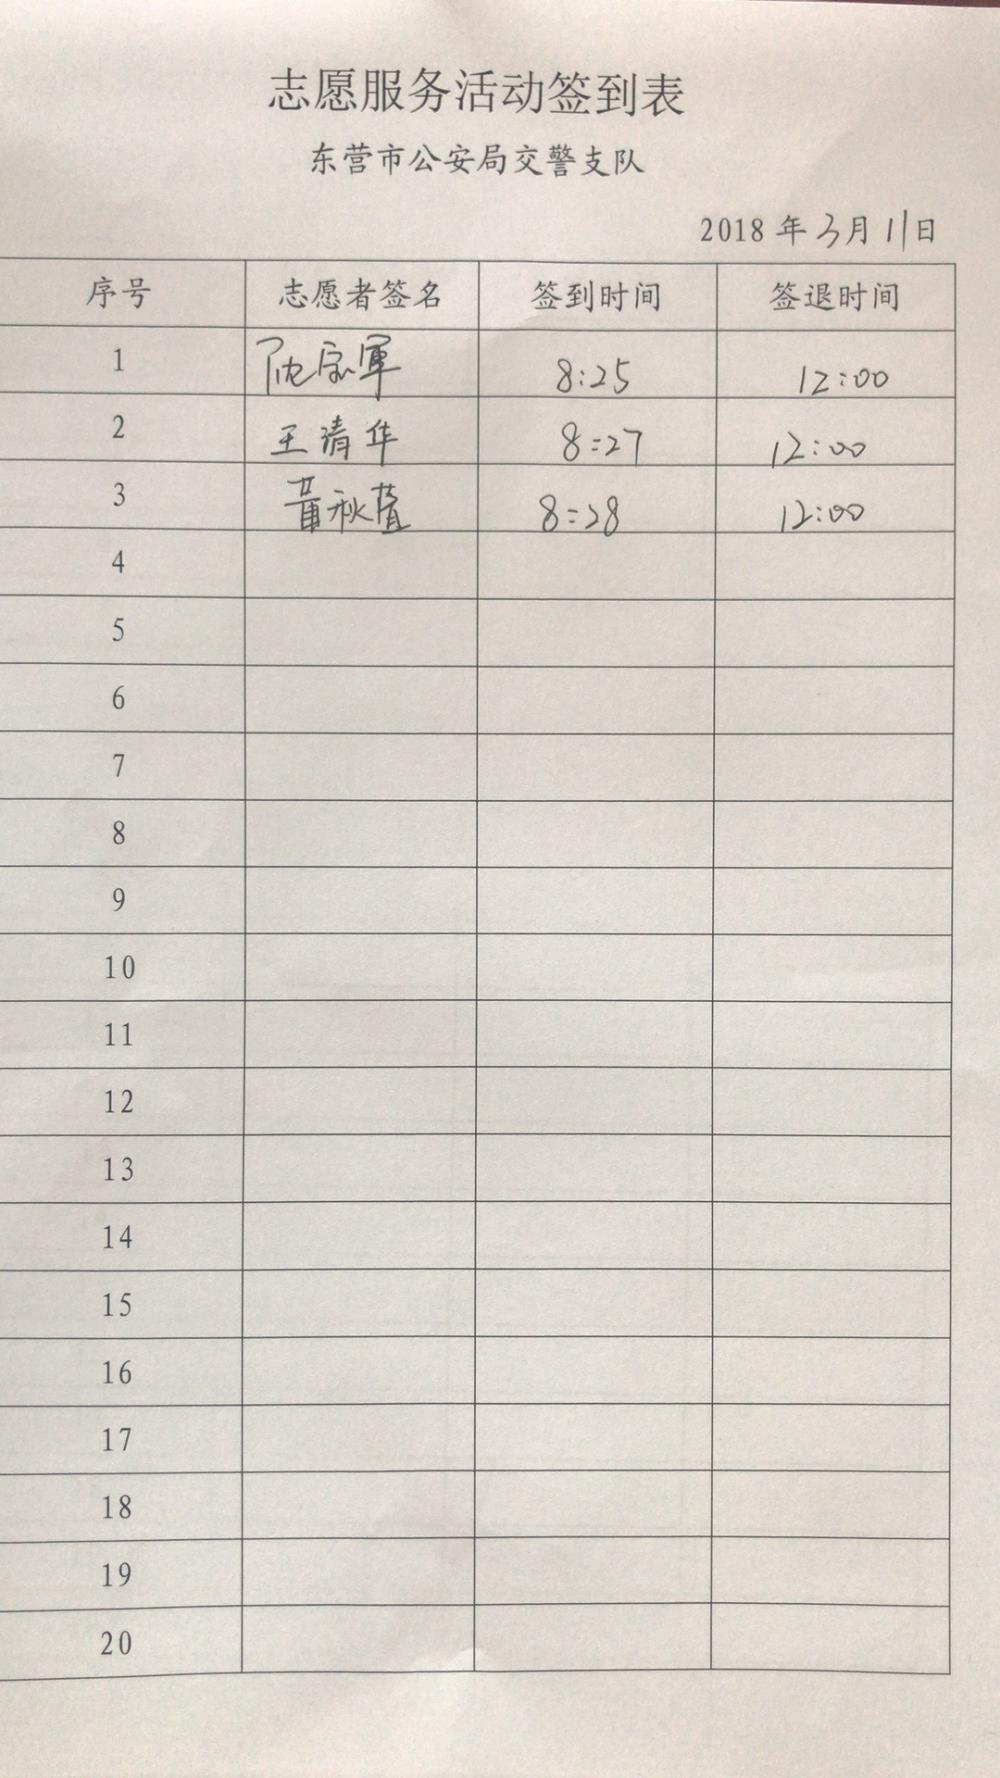 志愿服务活动签到表
东营市公安局交警支队
2018 年 3月 11日
序号 志愿者签名 签到时间 签退时间
1 8:25 12:00
2 王清华 8:27 12:00
3 董秋 8:28 12:00
4
5
6
7
8
9
10
11
12
13
14
15
16
17
18
19
20